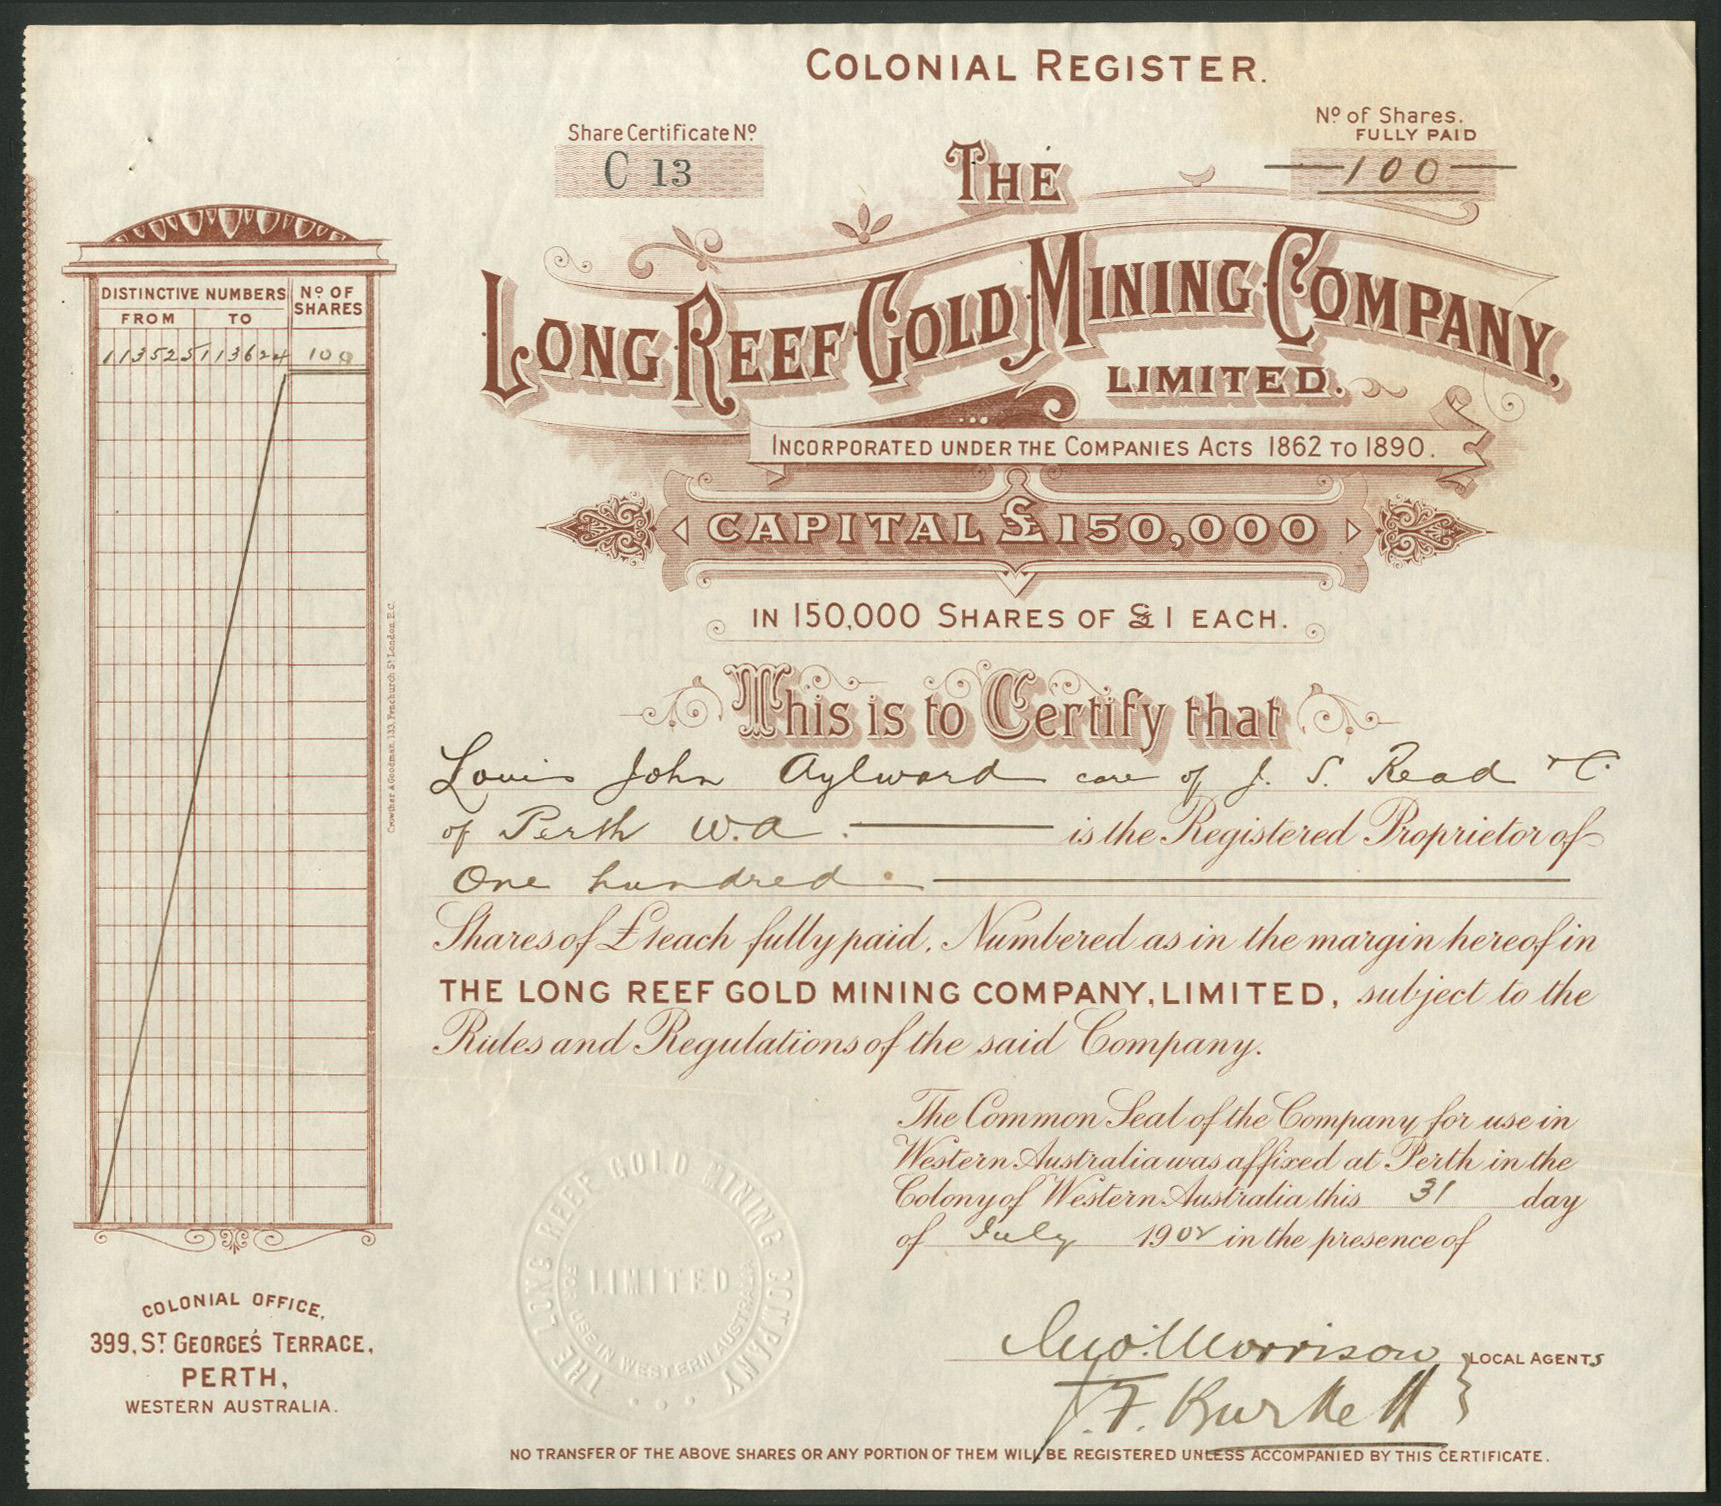 COLONIAL REGISTER.
Share Certificate No.
C 13
No. of Shares.
FULLY PAID
100
THE
LONG REEF GOLD MINING COMPANY,
LIMITED.
INCORPORATED UNDER THE COMPANIES ACTS 1862 TO 1890.
CAPITAL £150,000
IN 150,000 SHARES OF £1 EACH.
This is to Certify that
Louis John Aylward care of J. S. Read & C.
of Perth W.A. is the Registered Proprietor of
One hundred
Shares of £1 each fully paid, Numbered as in the margin hereof in
THE LONG REEF GOLD MINING COMPANY, LIMITED, subject to the
Rules and Regulations of the said Company.
The Common Seal of the Company for use in
Western Australia was affixed at Perth in the
Colony of Western Australia this 31 day
of July 1902 in the presence of
Morrison LOCAL AGENTS
J. F. Burkett
NO TRANSFER OF THE ABOVE SHARES OR ANY PORTION OF THEM WILL BE REGISTERED UNLESS ACCOMPANIED BY THIS CERTIFICATE.
DISTINCTIVE NUMBERS No. OF SHARES
FROM TO
113525 113624 100
Crowther & Goodman, 133, Fenchurch St. London, E.C.
COLONIAL OFFICE,
399, ST. GEORGE'S TERRACE,
PERTH,
WESTERN AUSTRALIA.
THE LONG REEF GOLD MINING COMPANY
LIMITED
FOR USE IN WESTERN AUSTRALIA